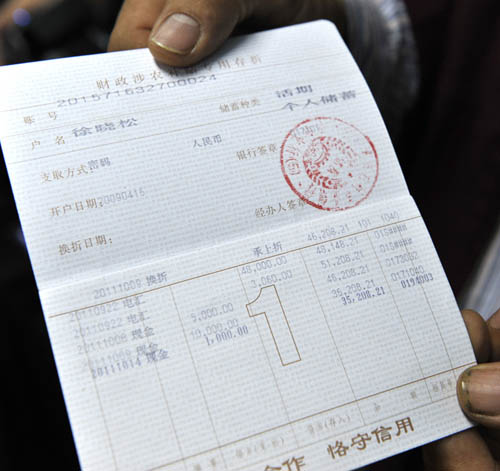 财政涉农补贴专用存折
账 号 2015716327000​24
储蓄种类 活期
个人储蓄
户 名 徐晓松
人民币
支取方式 密码
银行签章
开户日期: 20090415
经办人签章
换折日期:
20111009 换折 承上折 46,208.21 101 1040
20110922 电汇 48,148.21
20110922 电汇 3,060.00 51,208.21
20111008 现金 5,000.00 46,208.21 0173082
现金 10,000.00 36,208.21 0171040
20111014 现金 1,000.00 35,208.21 0194003
1
合作 恪守信用